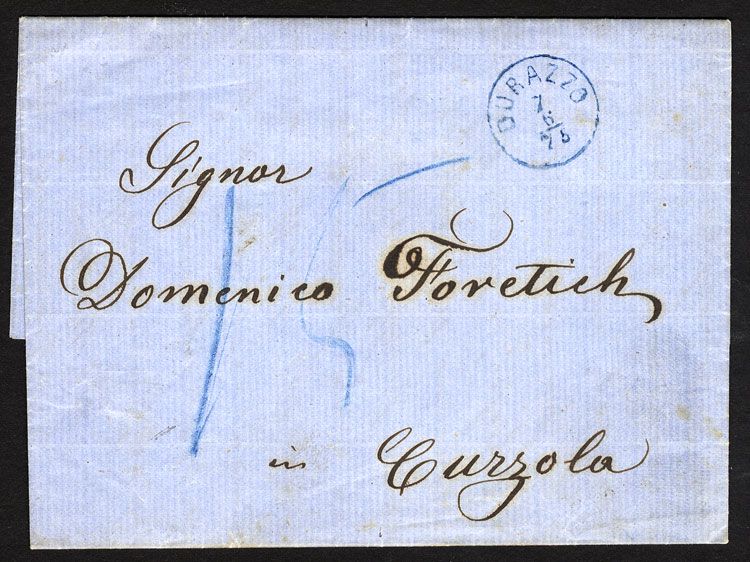 DURAZZO
Signor
15
Domenico Foretich
in Curzola